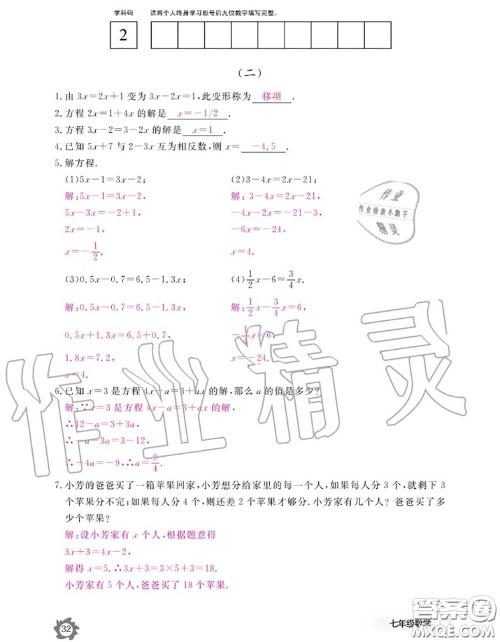 学科码 请将个人终身学习形号后九位数字填写完整。
2
（二）
1.由 3x=2x+1 变为 3x-2x=1,此变形称为 移项 .
2.方程 2x=1+4x 的解是 x=-1/2 .
3.方程 3x-2=3-2x 的解是 x=1 .
4.已知 5x+7 与 2-3x 互为相反数,则 x= -4.5 .
5.解方程.
(1)5x-1=3x-2; (2)3-4x=2x-21,
解:5x-1=3x-2, 解:3-4x=2x-21,
5x-3x=-2+1, -4x-2x=-21-3,
2x=-1, -6x=-24,
x=-1/2. x=4.
(3)0.5x-0.7=6.5-1.3x; (4)1/2x-6=3/4x.
解:0.5x-0.7=6.5-1.3x, 解:1/2x-3/4x=6,
0.5x+1.3x=6.5+0.7, -1/4x=6,
1.8x=7.2, x=-24.
x=4.
6.已知 x=3 是方程 4x-a=3+ax 的解,那么 a 的值是多少?
解:∵x=3 是方程 4x-a=3+ax 的解,
∴12-a=3+3a,
∴-a-3a=3-12,
∴-4a=-9,∴a=9/4.
7.小芳的爸爸买了一箱苹果回家,小芳想分给家里的每一个人,如果每人分 3 个,就剩下 3
个苹果分不完;如果每人分 4 个,则还差 2 个苹果才够分.小芳家有几个人?爸爸买了多
少个苹果?
解:设小芳家有 x 个人,根据题意得
3x+3=4x-2,
解得 x=5.∴3x+3=3×5+3=18.
小芳家有 5 个人,爸爸买了 18 个苹果.
32 七年级数学
作业精灵